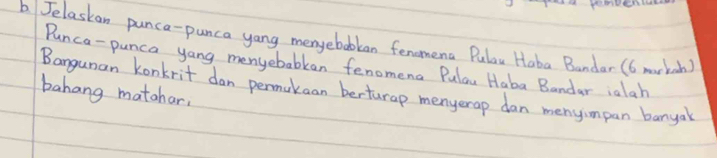 b. Jelaskan punca-punca yang menyebabkan fenomena Pulau Haba Bandar (6 markah)
Punca-punca yang menyebabkan fenomena Pulau Haba Bandar ialah
Bangunan konkrit dan permukaan berturap menyerap dan menyimpan banyak
bahang matahari.